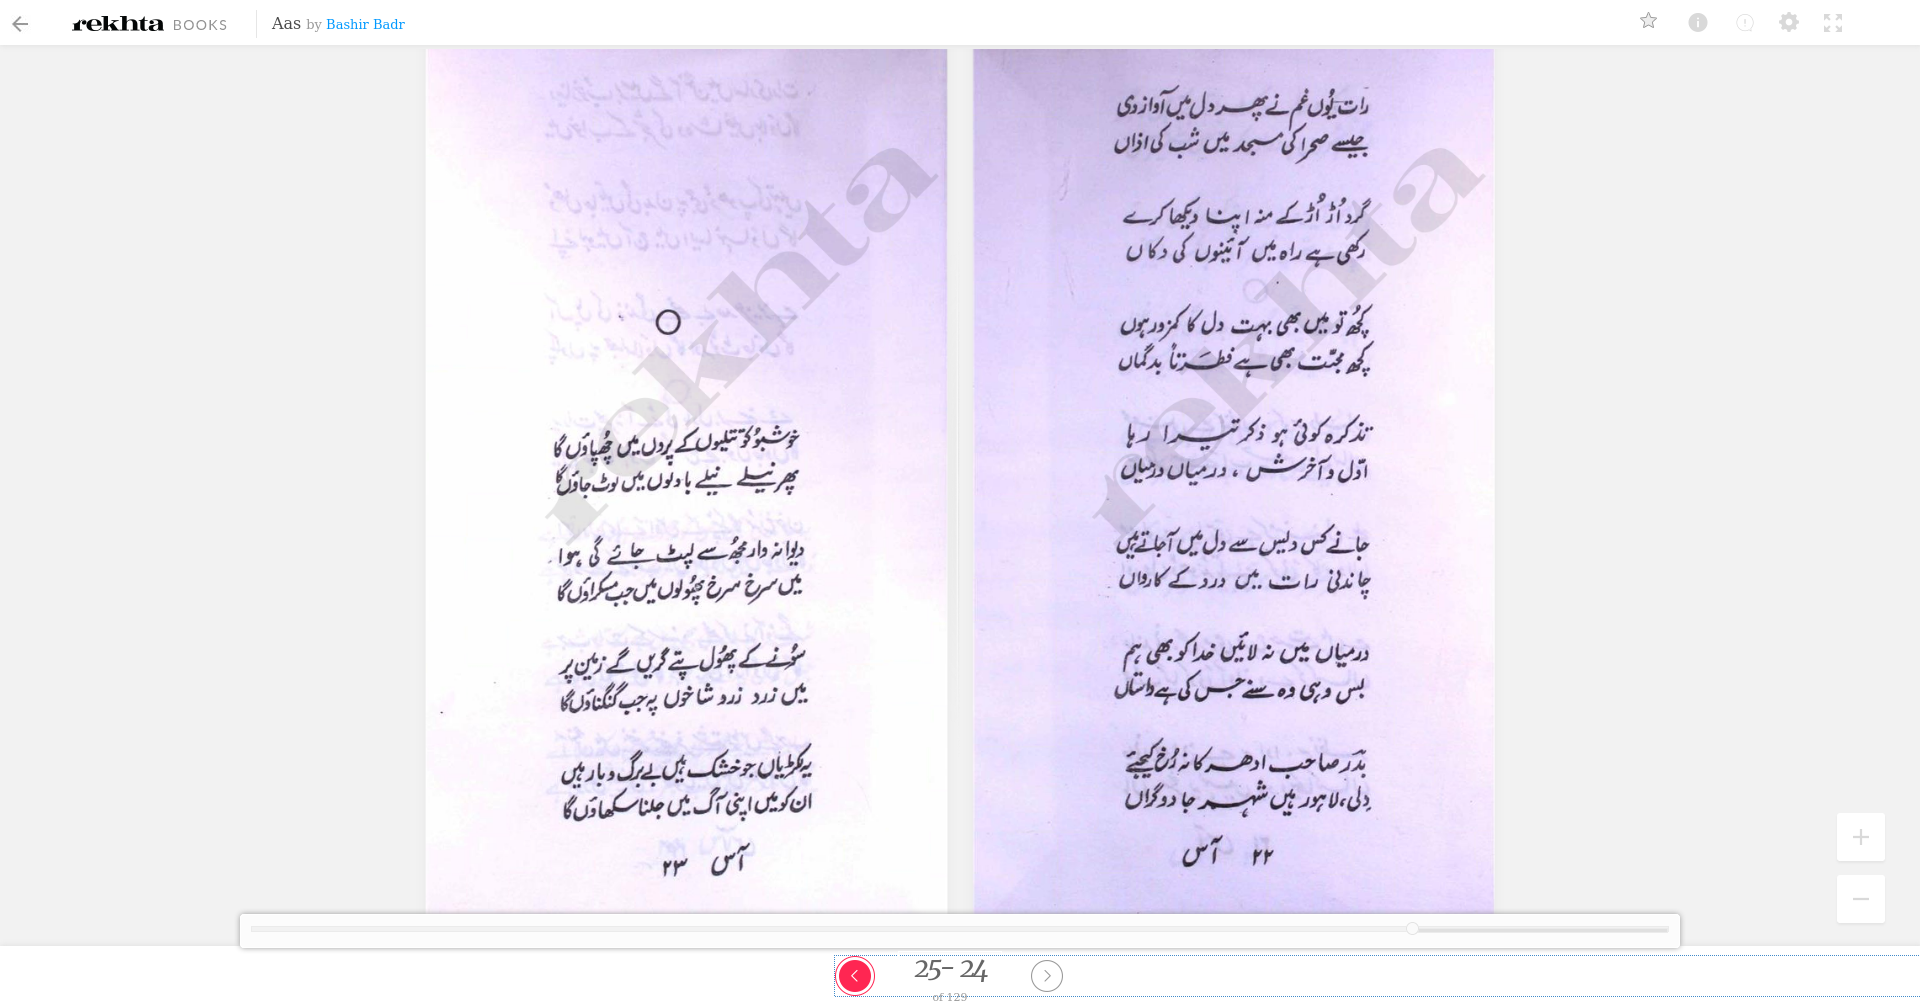 rekhta BOOKS Aas by Bashir Badr
رات یوں غم نے پھر دل میں آواز دی
جیسے صحرا کی مسجد میں شب کی اذاں
گرد اُڑ اُڑ کے منہ اپنا دیکھا کرے
رکھی ہے راہ میں آئینوں کی دکاں
کچھ تو میں بھی بہت دل کا کمزور ہوں
کچھ محبّت بھی ہے فطرتاً بدگماں
تذکرہ کوئی ہو ذکر تیرا رہا
اوّل و آخرش، درمیاں درمیاں
جانے کس دیس سے دل میں آجاتے ہیں
چاندنی رات میں درد کے کارواں
درمیاں میں نہ لائیں خدا کو بھی ہم
بس وہی وہ سنے جس کی ہے داستاں
بدر صاحب ادھر کا نہ رُخ کیجئے
دِلی، لاہور ہیں شہر جادوگراں
۲۲ آس
rekhta
خوشبو کو تتلیوں کے پروں میں چُھپاؤں گا
پھر نیلے نیلے بادلوں میں لوٹ جاؤں گا
دیوانہ وار مجھ سے لپٹ جائے گی ہوا
میں سرخ سرخ پھُولوں میں جب مسکراؤں گا
سونے کے پھُول پتے گریں گے زمین پر
میں زرد زرد شاخوں پہ جب گنگناؤں گا
یہ لکڑیاں جو خشک ہیں بے برگ و بار ہیں
ان کو میں اپنی آگ میں جلنا سکھاؤں گا
آس ۲۳
rekhta
25- 24
of 129